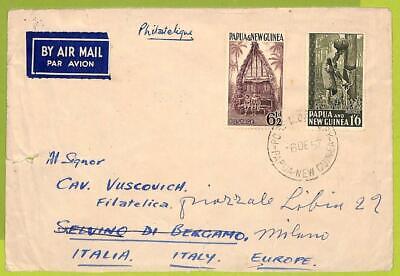 Philatelique
BY AIR MAIL
PAR AVION
PAPUA & NEW GUINEA
6½
PAPUA AND
NEW GUINEA 1'6
8 DE 57
PAPUA-NEW GUINEA
Al Signor
CAV. VUSCOVICH.
Filatelica. piazzale Libia 29
SELVINO DI BERGAMO, Milano
ITALIA. ITALY. EUROPE.